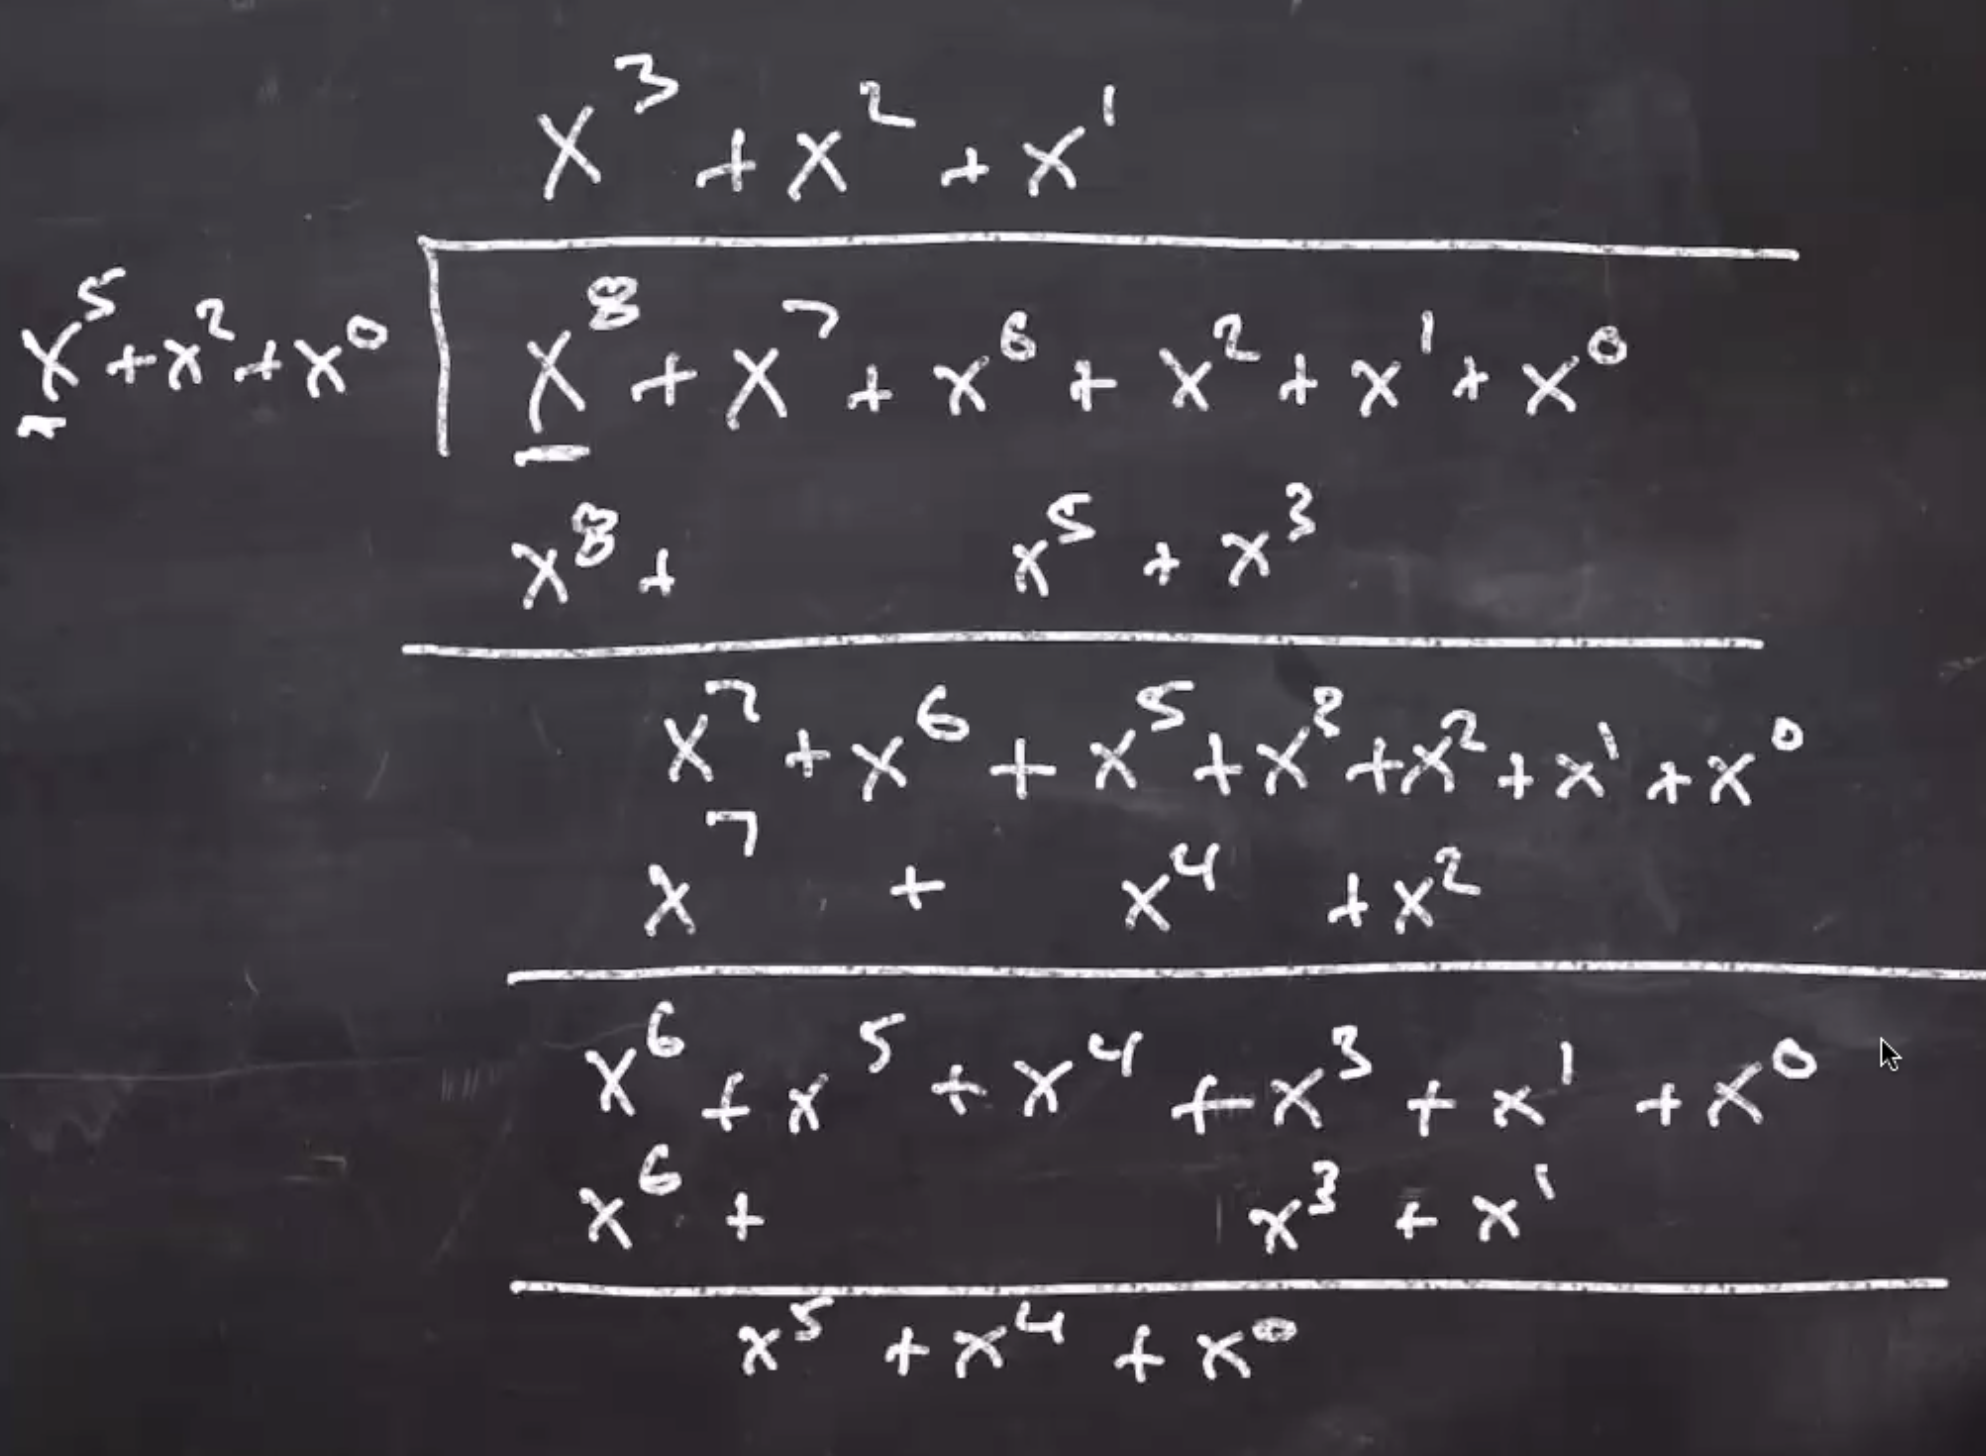 x³ + x² + x¹
x⁵ + x² + x⁰ x⁸ + x⁷ + x⁶ + x² + x¹ + x⁰
x⁸ + x⁵ + x³
x⁷ + x⁶ + x⁵ + x³ + x² + x¹ + x⁰
x⁷ + x⁴ + x²
x⁶ + x⁵ + x⁴ + x³ + x¹ + x⁰
x⁶ + x³ + x¹
x⁵ + x⁴ + x⁰